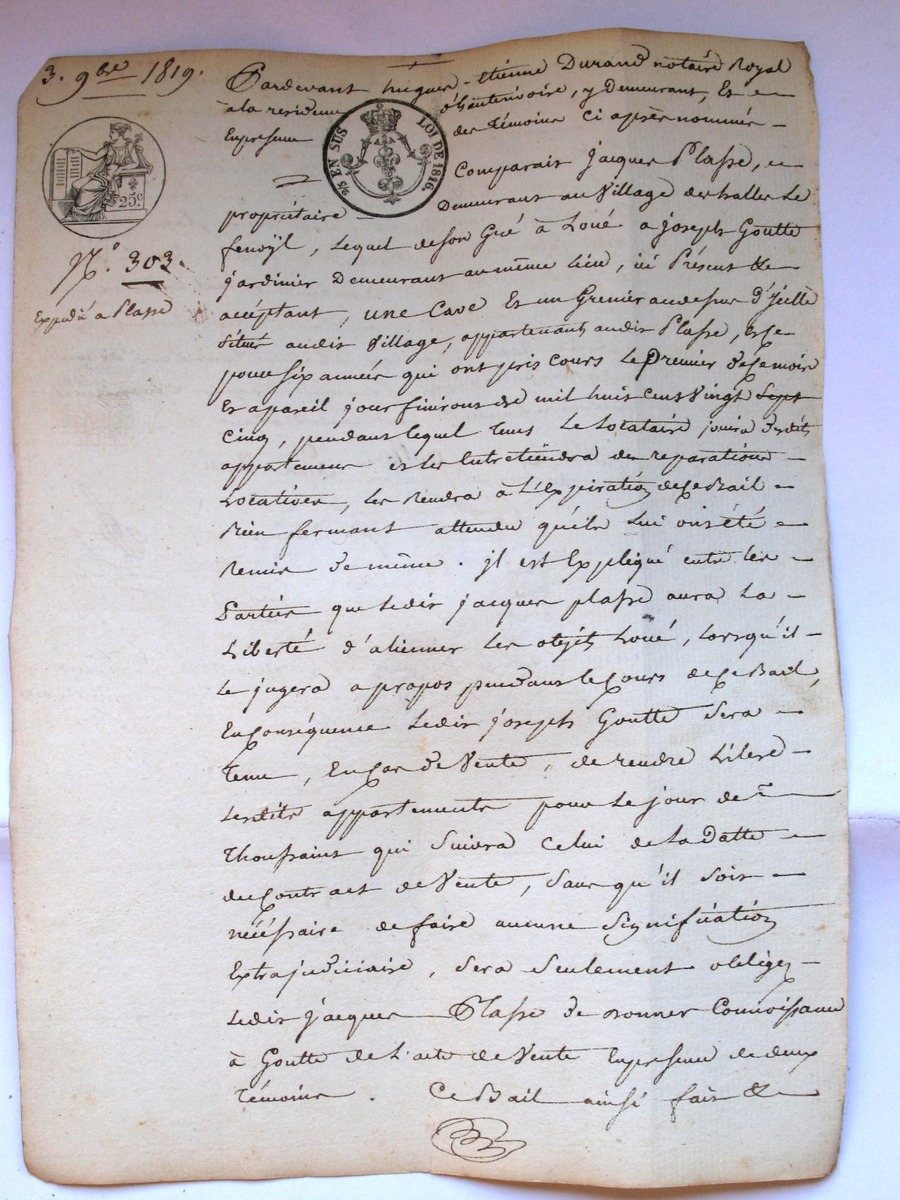 3. 9bre 1819.
Pardevant hugues-étienne Durand notaire Royal
à la residence d'hauterivoire, y Demeurant, Et en
En presence des témoins Ci après nommés
25c
¼ EN SUS LOI DE 1816.
Comparait jacques Plasse,
propriétaire Demeurant au Village des halles Le
fenoÿl, Lequel de son Gré à Loué a joseph Goutte
N.º 303.
jardinier Demeurant au même Lieu, ici Présent &
Expédié a Plasse
acceptant, une Cave Et un Grenier au dessus d'ycelle
Situés audit Village, appartenants audit Plasse, et Ce
pour Six années qui ont pris cours Le Premier
Et a pareil jour finiront de mil huit Cent Vingt Sept
Cinq, pendant lequel tems Le Locataire jouira desdits
appartements et les Entretiendra de reparations
Locatives, les rendra à L'Expiration de Ce Bail
Bien fermant attendu qu'ils Lui ont été
Remis de même. jl est Expliqué entre les
Parties que Ledit jacques plasse aura La
Liberté d'aliener Les objets Loué, Lorsqu'il
Le jugera a propos pendant le Cours de Ce Bail,
En Conséquence Ledit joseph Goutte Sera
tenu, En Cas de Vente, de rendre Libere
Lesdits appartements pour Le jour de
thoussaint qui Suivra Celui de La Datte
du Contract de Vente, Sans qu'il Soit
nécéssaire de faire aucune Signification
Extrajudiciaire, Sera Seulement obligez
Ledit jacques Plasse de donner Connoissance
à Goutte de L'acte de Vente En presence de deux
témoins. Ce Bail ainsi fait &